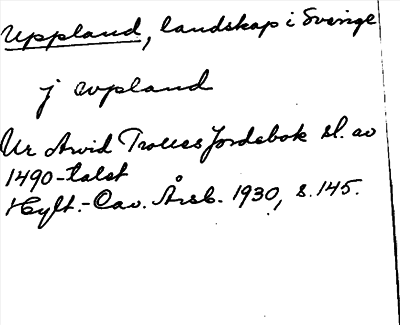 Uppland, landskap i Sverige
j wpland
Ur Arvid Trolles Jordebok sl. av
1490-talet
Hylt.-Cav. Årsb. 1930, s. 145.